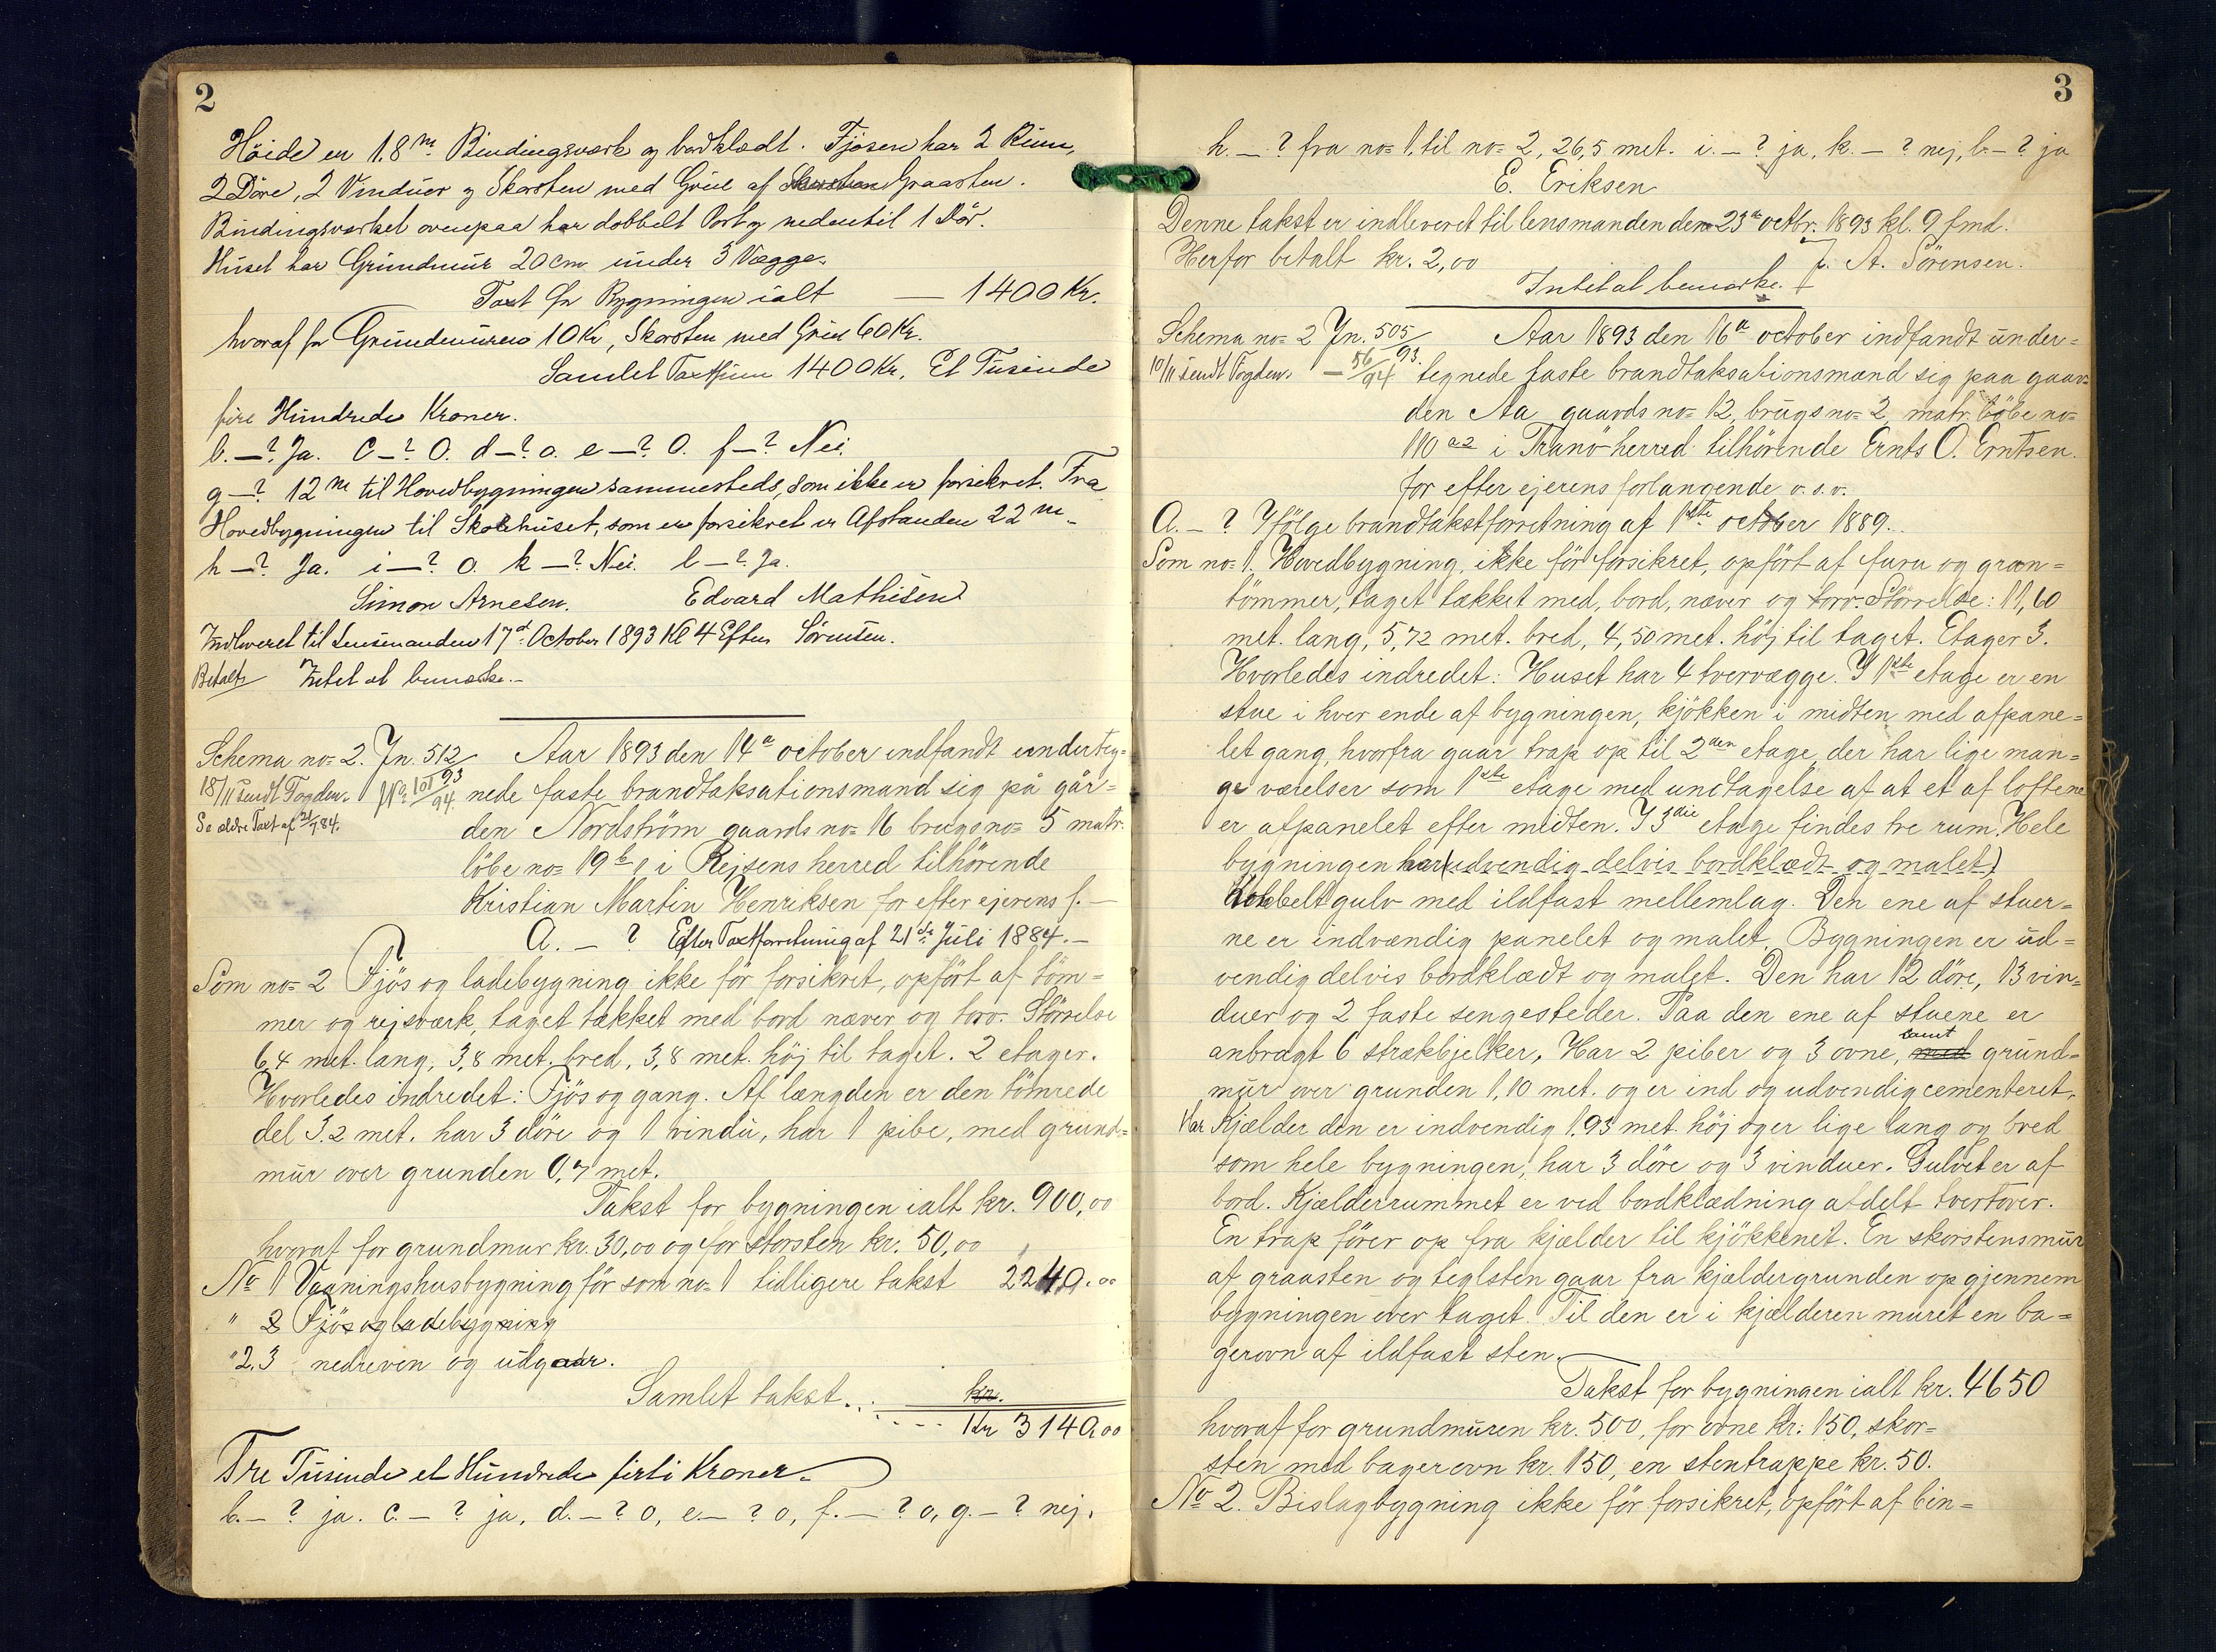 2
Höide er 1.8 m. Bindingsværk og bordklædt. Fjøsen har 2 Rum,
2 Döre, 2 Vinduer og Skorsten med Grue af Graasten.
Bindingsværket ovenpaa har dobbelt Port og nedentil 1 Dör.
Huset har Grundmur 20 cm under 3 Vægge.
Taxt for Bygningen ialt — 1400 Kr.
hvoraf for Grundmuren 10 Kr, Skorsten med Grue 60 Kr.
Samlet Taxtsum 1400 Kr. Et Tusinde
fire Hundrede Kroner.
b. —? Ja. C —? O. d —? o. e —? O. f —? Nei.
g —? 12 m til Hovedbygningen sammesteds, som ikke er forsikret. Fra
Hovedbygningen til Skolehuset, som er forsikret er Afstanden 22 m.
h —? Ja. i —? o. k —? Nei. l —? Ja.
Simon Arnesen. Edvard Mathisen
Indleveret til Lensmanden 17d. October 1893 Kl 4 Efterm Sörensen.
Betalt Intet at bemærke.—
Schema no= 2. Jn. 512/93 Aar 1893 den 14de october indfandt underteg=
18/11 sendt Fogden. No. 101/94. nede faste brandtaksationsmænd sig på går=
Se ældre Taxt af 21/7 84. den Nordström gaards no= 16 brugsno= 5 matr.
löbe no= 19 b 1 i Rejsens herred tilhörende
Kristian Martin Henriksen for efter ejerens f. —
A. — ? Efter Taxtforretning af 21de Juli 1884.—
Som no= 2 Fjös og ladebygning ikke för forsikret, opfört af töm=
mer og rejsværk, taget tækket med bord næver og torv. Störrelse
6,4 met. lang, 3,8 met. bred, 3,8 met. höj til taget. 2 etager.
Hvorledes indredet: Fjös og gang. Af længden er den tömrede
del 3.2 met. har 3 döre og 1 vindu, har 1 pibe, med grund=
mur over grunden 0,7 met.
Takst for bygningen ialt kr. 900,00
hvoraf for grundmur kr. 30,00 og for storsten kr. 50,00
No 1 Vaaningshusbygning för som no= 1 tidligere takst 2240.00
" 2 Fjös og ladebygning
" 2,3 nedreven og udgaar.
Samlet takst... kr.
.... Kr 3140,00
Tre Tusinde et Hundrede firti Kroner.
b. — ? ja. c. — ? ja, d. — ? o, e. — ? o, f. — ? o, g. — ? nej.
3
h. — ? fra no= 1, til no= 2, 26,5 met. i. — ? ja, k. — ? nej, l. — ? ja
E. Eriksen
Denne takst er indleveret til lensmanden den 23de octbr. 1893 kl. 9 fmd.
Herfor betalt kr. 2,00 J. A. Sörensen.
Intet at bemærke.
Schema no= 2 Jn. 505/93. Aar 1893 den 16de october indfandt under=
10/11 sendt Fogden. — 56/94 tegnede faste brandtaksationsmænd sig paa gaar=
den Aa gaards no= 12, brugsno= 2 matr. löbe no=
110 a2 i Tranö herred tilhörende Ernts O. Erntsen.
for efter ejerens forlangende o.s.v.
A. — ? Ifölge brandtakstforretning af 1ste october 1889.
Som no= 1. Hovedbygning, ikke för forsikret, opfört af furu og gran=
tömmer, taget tækket med, bord, næver og torv. Störrelse: 11,60
met. lang, 5,72 met. bred, 4,50 met. höj til taget. Etager 3.
Hvorledes indredet: Huset har 4 tvervægge. I 1ste etage er en
stue i hver ende af bygningen, kjökken i midten med afpane=
let gang, hvorfra gaar trap op til 2den etage, der har lige man=
ge værelser som 1ste etage med undtagelse af at et af loftene
er afpanelet efter midten. I 3die etage findes tre rum. Hele
bygningen har (udvendig delvis bordklædt og malet)
dobbelt gulv med ildfast mellemlag. Den ene af stuer=
ne er indvændig panelet og malet. Bygningen er ud=
vendig delvis bordklædt og malet. Den har 12 döre, 13 vin=
duer og 2 faste sengesteder. Paa den ene af stuene er
anbragt 6 strækbjelker. Har 2 piber og 3 ovne, med samt grund=
mur over grunden 1,10 met. og er ind og udvendig cementeret.
Har Kjælder den er indvendig 1.93 met. höj og er lige lang og bred
som hele bygningen, har 3 döre og 3 vinduer. Gulvet er af
bord. Kjælderrummet er ved bordklædning afdelt tvertover.
En trap förer op fra kjælder til kjökkenet. En skorstensmur
af graasten og teglsten gaar fra kjældergrunden op gjennem
bygningen over taget. Til den er i kjælderen muret en ba=
gerovn af ildfast sten.
Takst for bygningen ialt kr. 4650
hvoraf for grundmuren kr. 500, for ovne kr: 150, skor=
sten med bagerovn kr. 150, en stentrappe kr. 50.
No 2. Bislagbygning ikke för forsikret, opfört af bin=